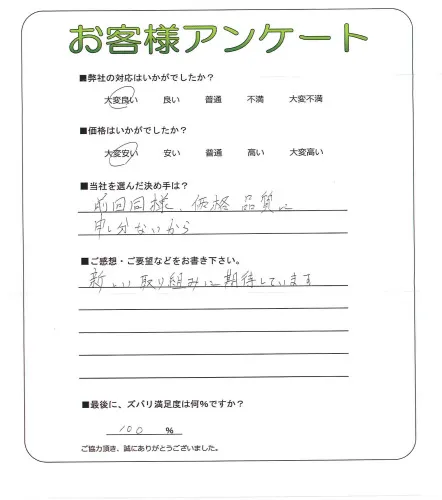 お客様アンケート
■弊社の対応はいかがでしたか?
大変良い 良い 普通 不満 大変不満
■価格はいかがでしたか?
大変安い 安い 普通 高い 大変高い
■当社を選んだ決め手は?
前回同様、価格 品質に
申し分ないから
■ご感想・ご要望などをお書き下さい。
新しい取り組みに期待しています
■最後に、ズバリ満足度は何%ですか?
100 %
ご協力頂き、誠にありがとうございました。